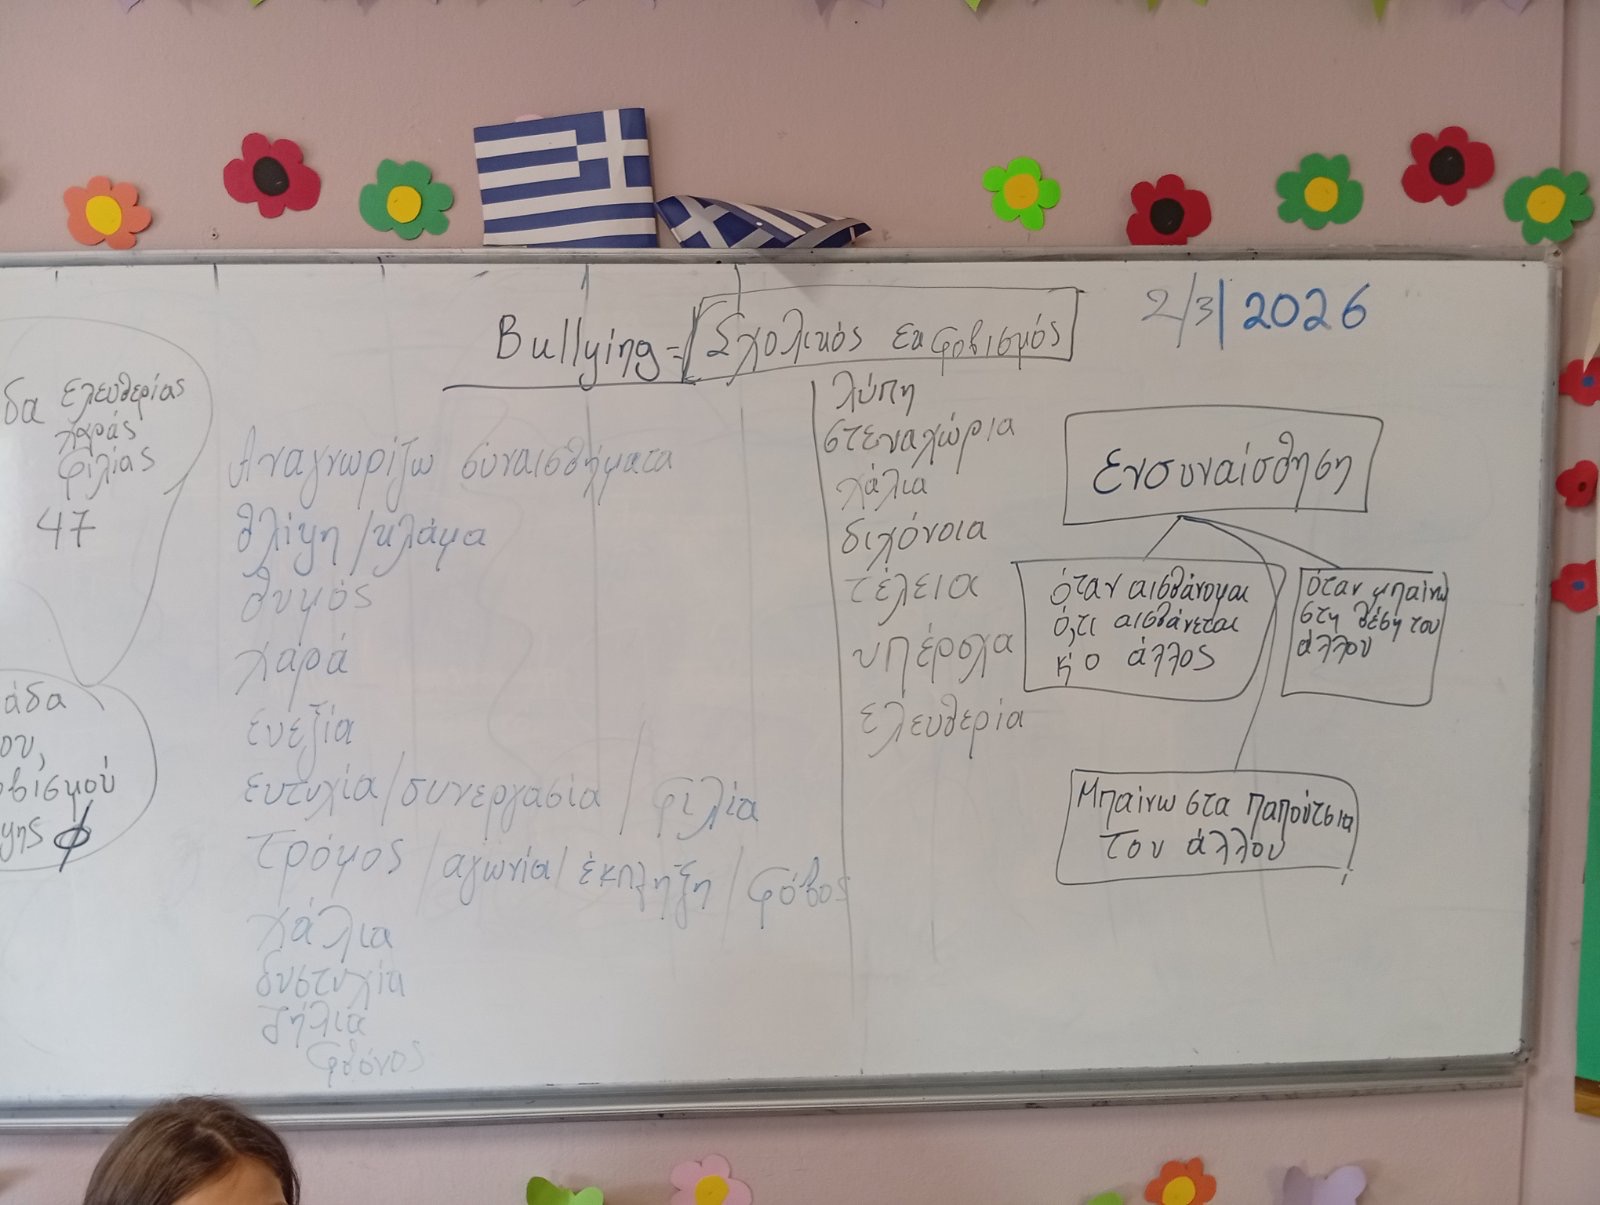 Bullying = Σχολικός εκφοβισμός
2/3/2026
δα ελευθερίας
χαράς
φιλίας
47
άδα
ου,
βισμού
ψης φ
Αναγνωρίζω συναισθήματα
θλίψη / κλάμα
θυμός
χαρά
ευεξία
ευτυχία / συνεργασία / φιλία
τρόμος / αγωνία / έκπληξη / φόβος
χάλια
δυστυχία
ζήλια
φθόνος
λύπη
στεναχώρια
χάλια
διχόνοια
τέλεια
υπέροχα
ελευθερία
Ενσυναίσθηση
όταν αισθάνομαι
ό,τι αισθάνεται
κι ο άλλος
όταν μπαίνω
στη θέση του
άλλου
Μπαίνω στα παπούτσια
του άλλου